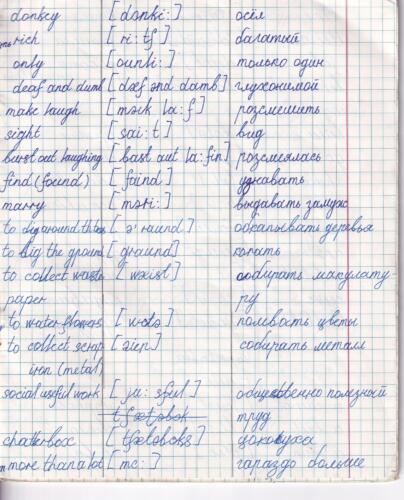 donkey [donki:] осёл
rich [ri:tʃ] багатий
only [ounli:] только один
deaf and dumb [dæf ənd damb] глухонимой
make laugh [mæik la:f] розсмешить
sight [sai:t] вид
burst out laughing [bast aut la:fin] розсмеялась
find (found) [faind] узнавать
marry [mæri:] выдавать замуж
to dig around thtes [ə'raund] обкапывать деревья
to big the ground [graund] копать
to collect waste [wæist] собирать макулату-
paper ру
to water flowers поливать цветы
to collect scrap собирать металл
iron (metal)
social useful work [ju:sful] общественно полезный
труд
chatterbox [tʃætəboks] цокотуха
more than a lot [mc:] гараздо больше